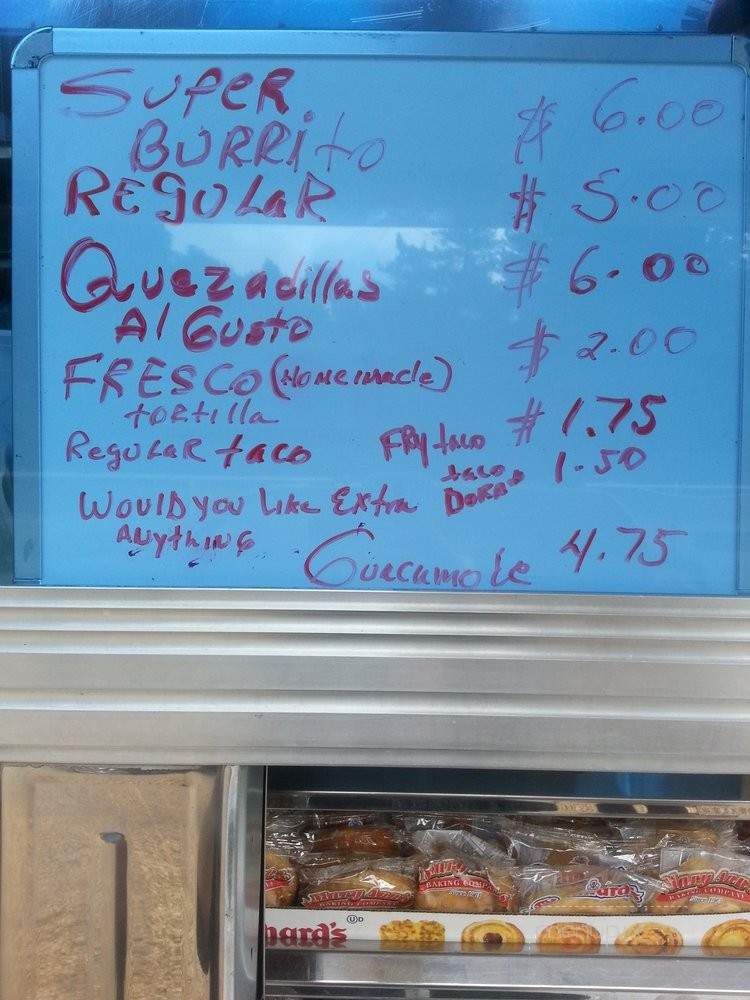 SUPER
BURRITO $ 6.00
REGULAR $ 5.00
Quezadillas $ 6.00
Al Gusto
FRESCO (HOMEmade) $ 2.00
tortilla
Regular taco FRy taco $ 1.75
taco DORA 1.50
WOULD you Like Extra
ANYthING
Guacamole 4.75
Mary Ann
BAKING COMPANY
BAKING COMP
BAKING COMPANY
nard's
UD